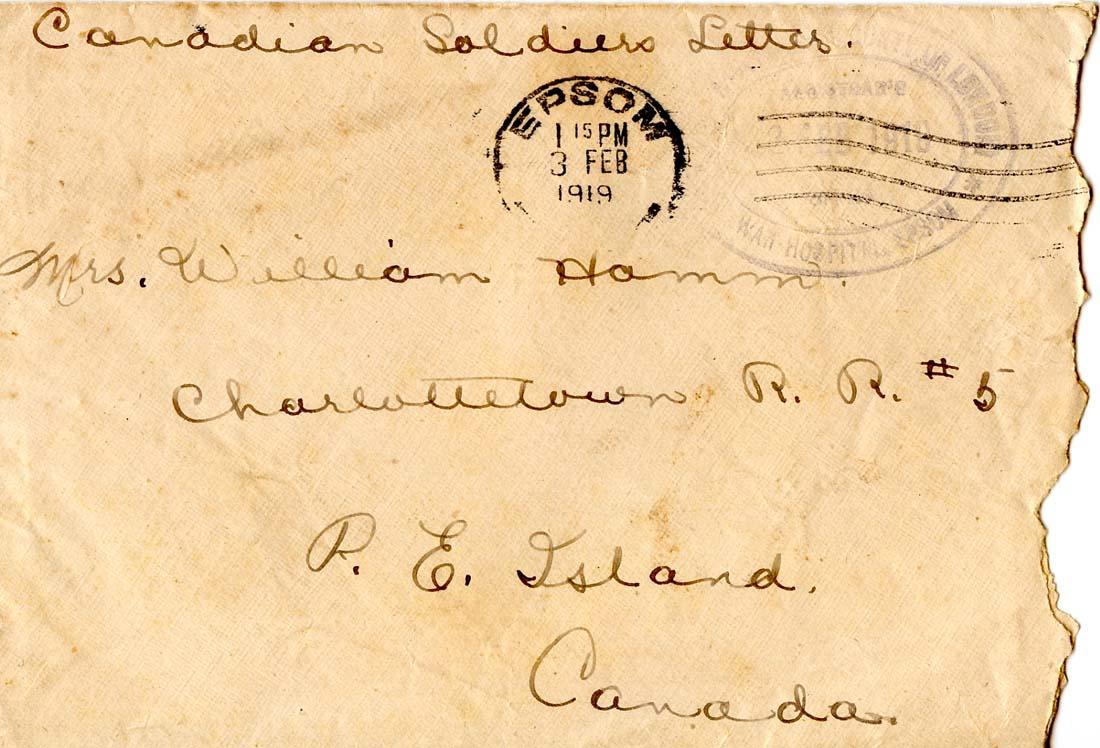 Canadian Soldiers Letter.
EPSOM
1 15 PM
3 FEB
1919
LONDON
1919
WAR HOSPITAL EPSOM
Mrs. William Hamm.
Charlottetown R. R. # 5
P. E. Island.
Canada.